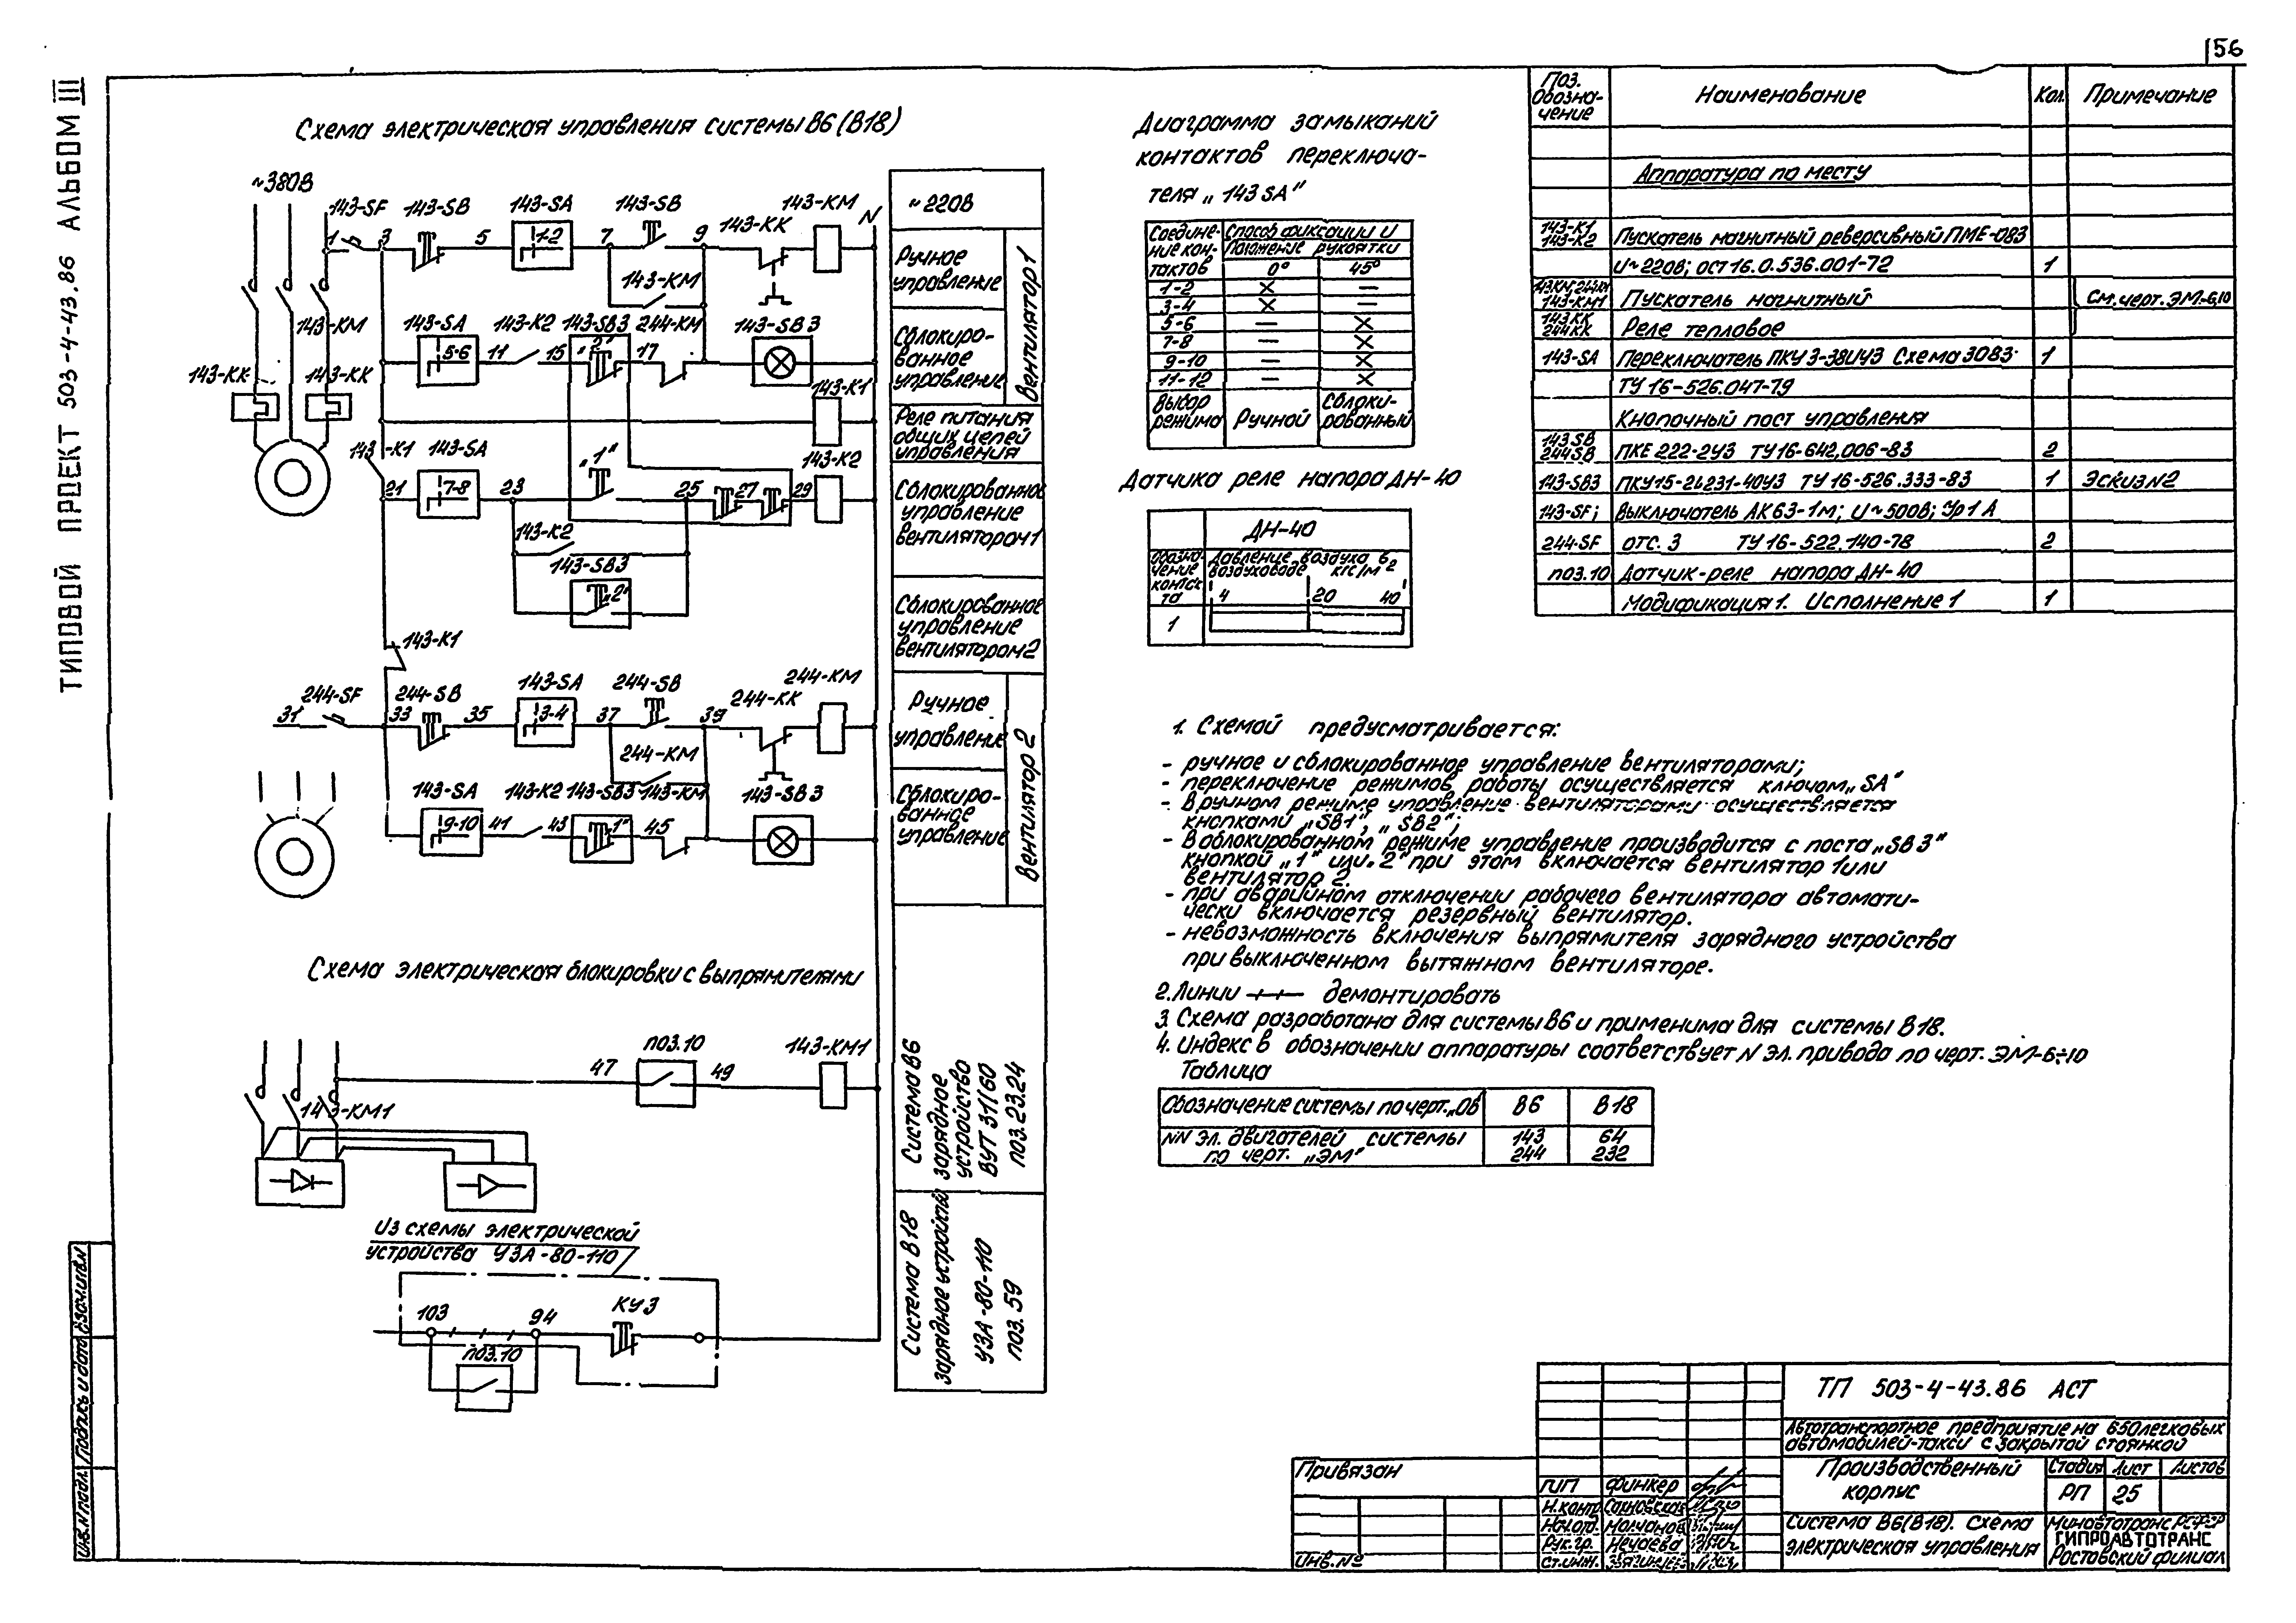 156
ТИПОВОЙ ПРОЕКТ 503-4-43.86 АЛЬБОМ III
Схема электрическая управления системы В6 (В18)
~380В
143-SF
143-SB
143-SA
143-SB
143-KK
143-KM
N
1
3
5
1-2
7
9
143-KM
143-KM
143-SA
143-K2
143-SB3
244-KM
143-SB3
5-6
11
15
"2"
17
143-KK
143-KK
143-K1
143-K1
143-SA
"1"
143-K2
21
7-8
23
25
27
29
143-K2
143-SB3
"2"
143-K1
244-SF
244-SB
143-SA
244-SB
244-KK
244-KM
31
33
35
3-4
37
39
244-KM
143-SA
143-K2
143-SB3
143-KM
143-SB3
9-10
41
43
"1"
45
~220В
Ручное управление
Сблокиро-
ванное
управление
Вентилятор 1
Реле питания
общих цепей
управления
Сблокированное
управление
вентилятором 1
Сблокированное
управление
вентилятором 2
Ручное
управление
Сблокиро-
ванное
управление
Вентилятор 2
Схема электрическая блокировки с выпрямителями
47
поз.10
49
143-KM1
143-KM1
Система В6
зарядное
устройство
ВУТ 31/60
поз.23.24
Из схемы электрической
устройства УЗА-80-110
103
94
КУ3
поз.10
Система В18
зарядное устройство
УЗА-80-110
поз. 59
Диаграмма замыканий
контактов переключа-
теля „143 SA"
Соедине-
ние кон-
тактов
Способ фиксации и
положение рукоятки
0° 45°
1-2 × —
3-4 × —
5-6 — ×
7-8 — ×
9-10 — ×
11-12 — ×
Выбор
режима
Ручной
Сблоки-
рованный
Датчика реле напора ДН-40
ДН-40
Обозна-
чение
контак-
та
Давление воздуха в
воздуховоде кгс/м2
4 20 40
1
Поз.
Обозна-
чение
Наименование
Кол.
Примечание
Аппаратура по месту
143-K1
143-K2
Пускатель магнитный реверсивный ПМЕ-083
U~220В; ОСТ 16.0.536.001-72 1
143KM, 244KM
143-KM1
Пускатель магнитный
См.черт.ЭМ-6,10
143KK
244KK
Реле тепловое
143-SA Переключатель ПКУ 3-38И У3 Схема 3083 1
ТУ 16-526.047-79
Кнопочный пост управления
143SB
244SB
ПКЕ 222-2У3 ТУ 16-642.006-83 2
143-SB3 ПКУ15-21.231-40У3 ТУ 16-526.333-83 1 Эскиз N2
143-SF; Выключатель АК63-1м; U~500В; Ур 1 А
244-SF отс. 3 ТУ 16-522.140-78 2
поз.10 Датчик-реле напора ДН-40
Модификация 1. Исполнение 1 1
1. Схемой предусматривается:
- ручное и сблокированное управление вентиляторами;
- переключение режимов работы осуществляется ключом „SA"
- В ручном режиме управление вентиляторами осуществляется
кнопками „SB1", „SB2";
- В облокированном режиме управление производится с поста „SB3"
кнопкой „1" или „2" при этом включается вентилятор 1 или
вентилятор 2.
- при аварийном отключении рабочего вентилятора автомати-
чески включается резервный вентилятор.
- невозможность включения выпрямителя зарядного устройства
при выключенном вытяжном вентиляторе.
2. Линии демонтировать
3. Схема разработана для системы В6 и применима для системы В18.
4. Индекс в обозначении аппаратуры соответствует N эл. привода по черт. ЭМ-6÷10
Таблица
Обозначение системы по черт. „ОВ В6 В18
NN эл. двигателей системы
по черт. „ЭМ"
143
244
64
232
ТП 503-4-43.86 АСТ
Автотранспортное предприятие на 650 легковых
автомобилей-такси с закрытой стоянкой
Производственный
корпус
Стадия Лист Листов
РП 25
Система В6(В18). Схема
электрическая управления
Минавтотранс РСФСР
ГИПРОАВТОТРАНС
Ростовский филиал
ГИП Финкер
Н.контр. Сахновская
Нач.отд. Молчанов
Рук.гр. Нечаева
Ст.инж.
Привязан
Инв.№
Взам.инв.N
Подпись и дата
Инв.N подл.